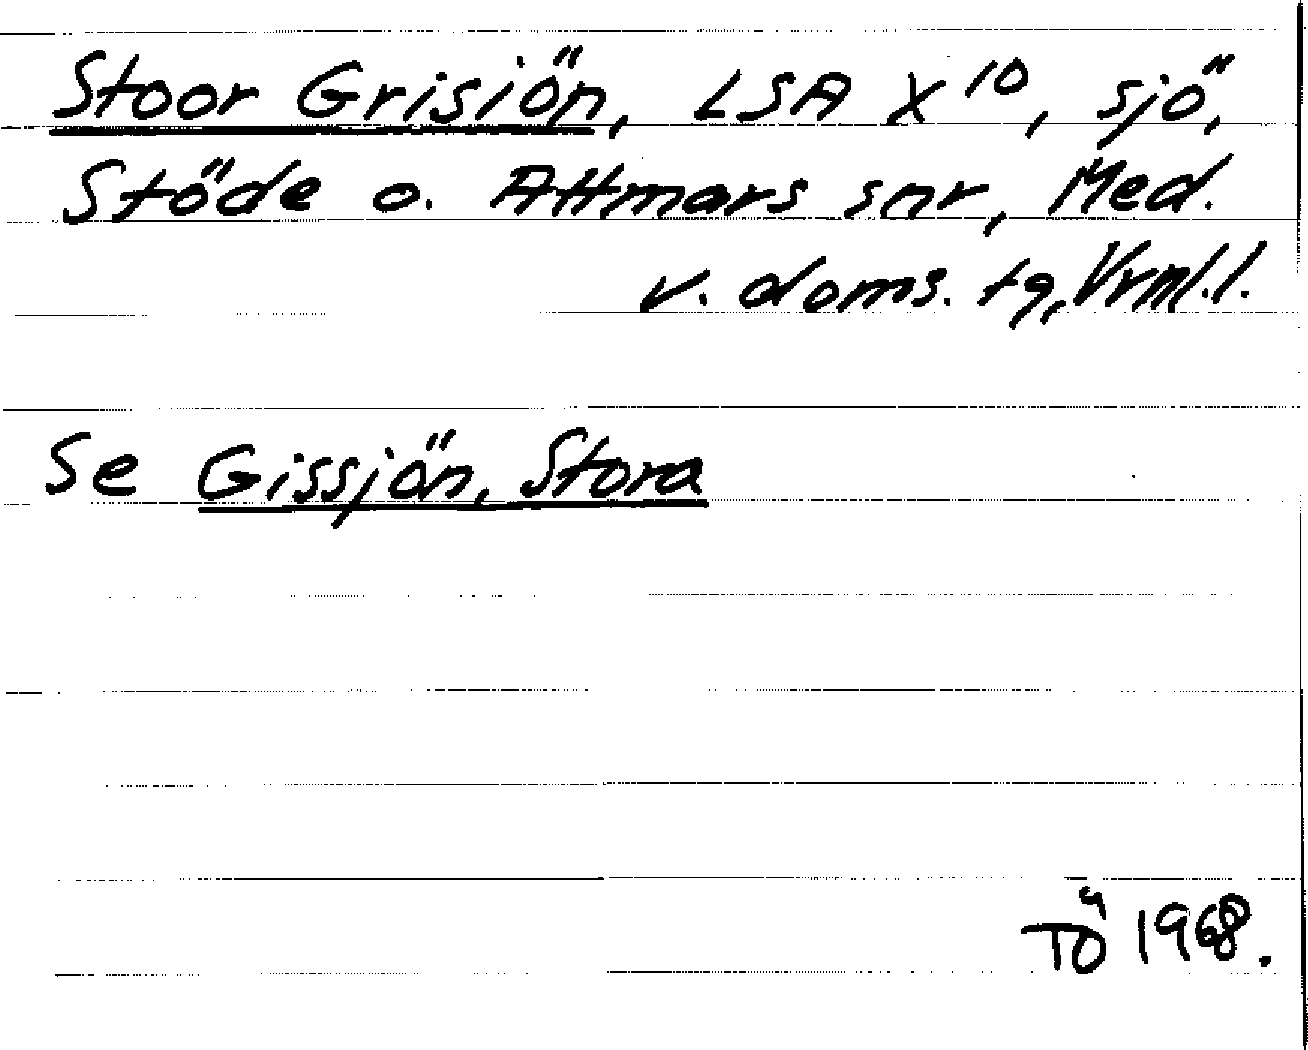 Stoor Grisiön, LSA X 10, sjö,
Stöde o. Attmars snr, Med.
v. doms. tg, Vrml.l.
Se Gissjön, Stora
TÖ 1968.